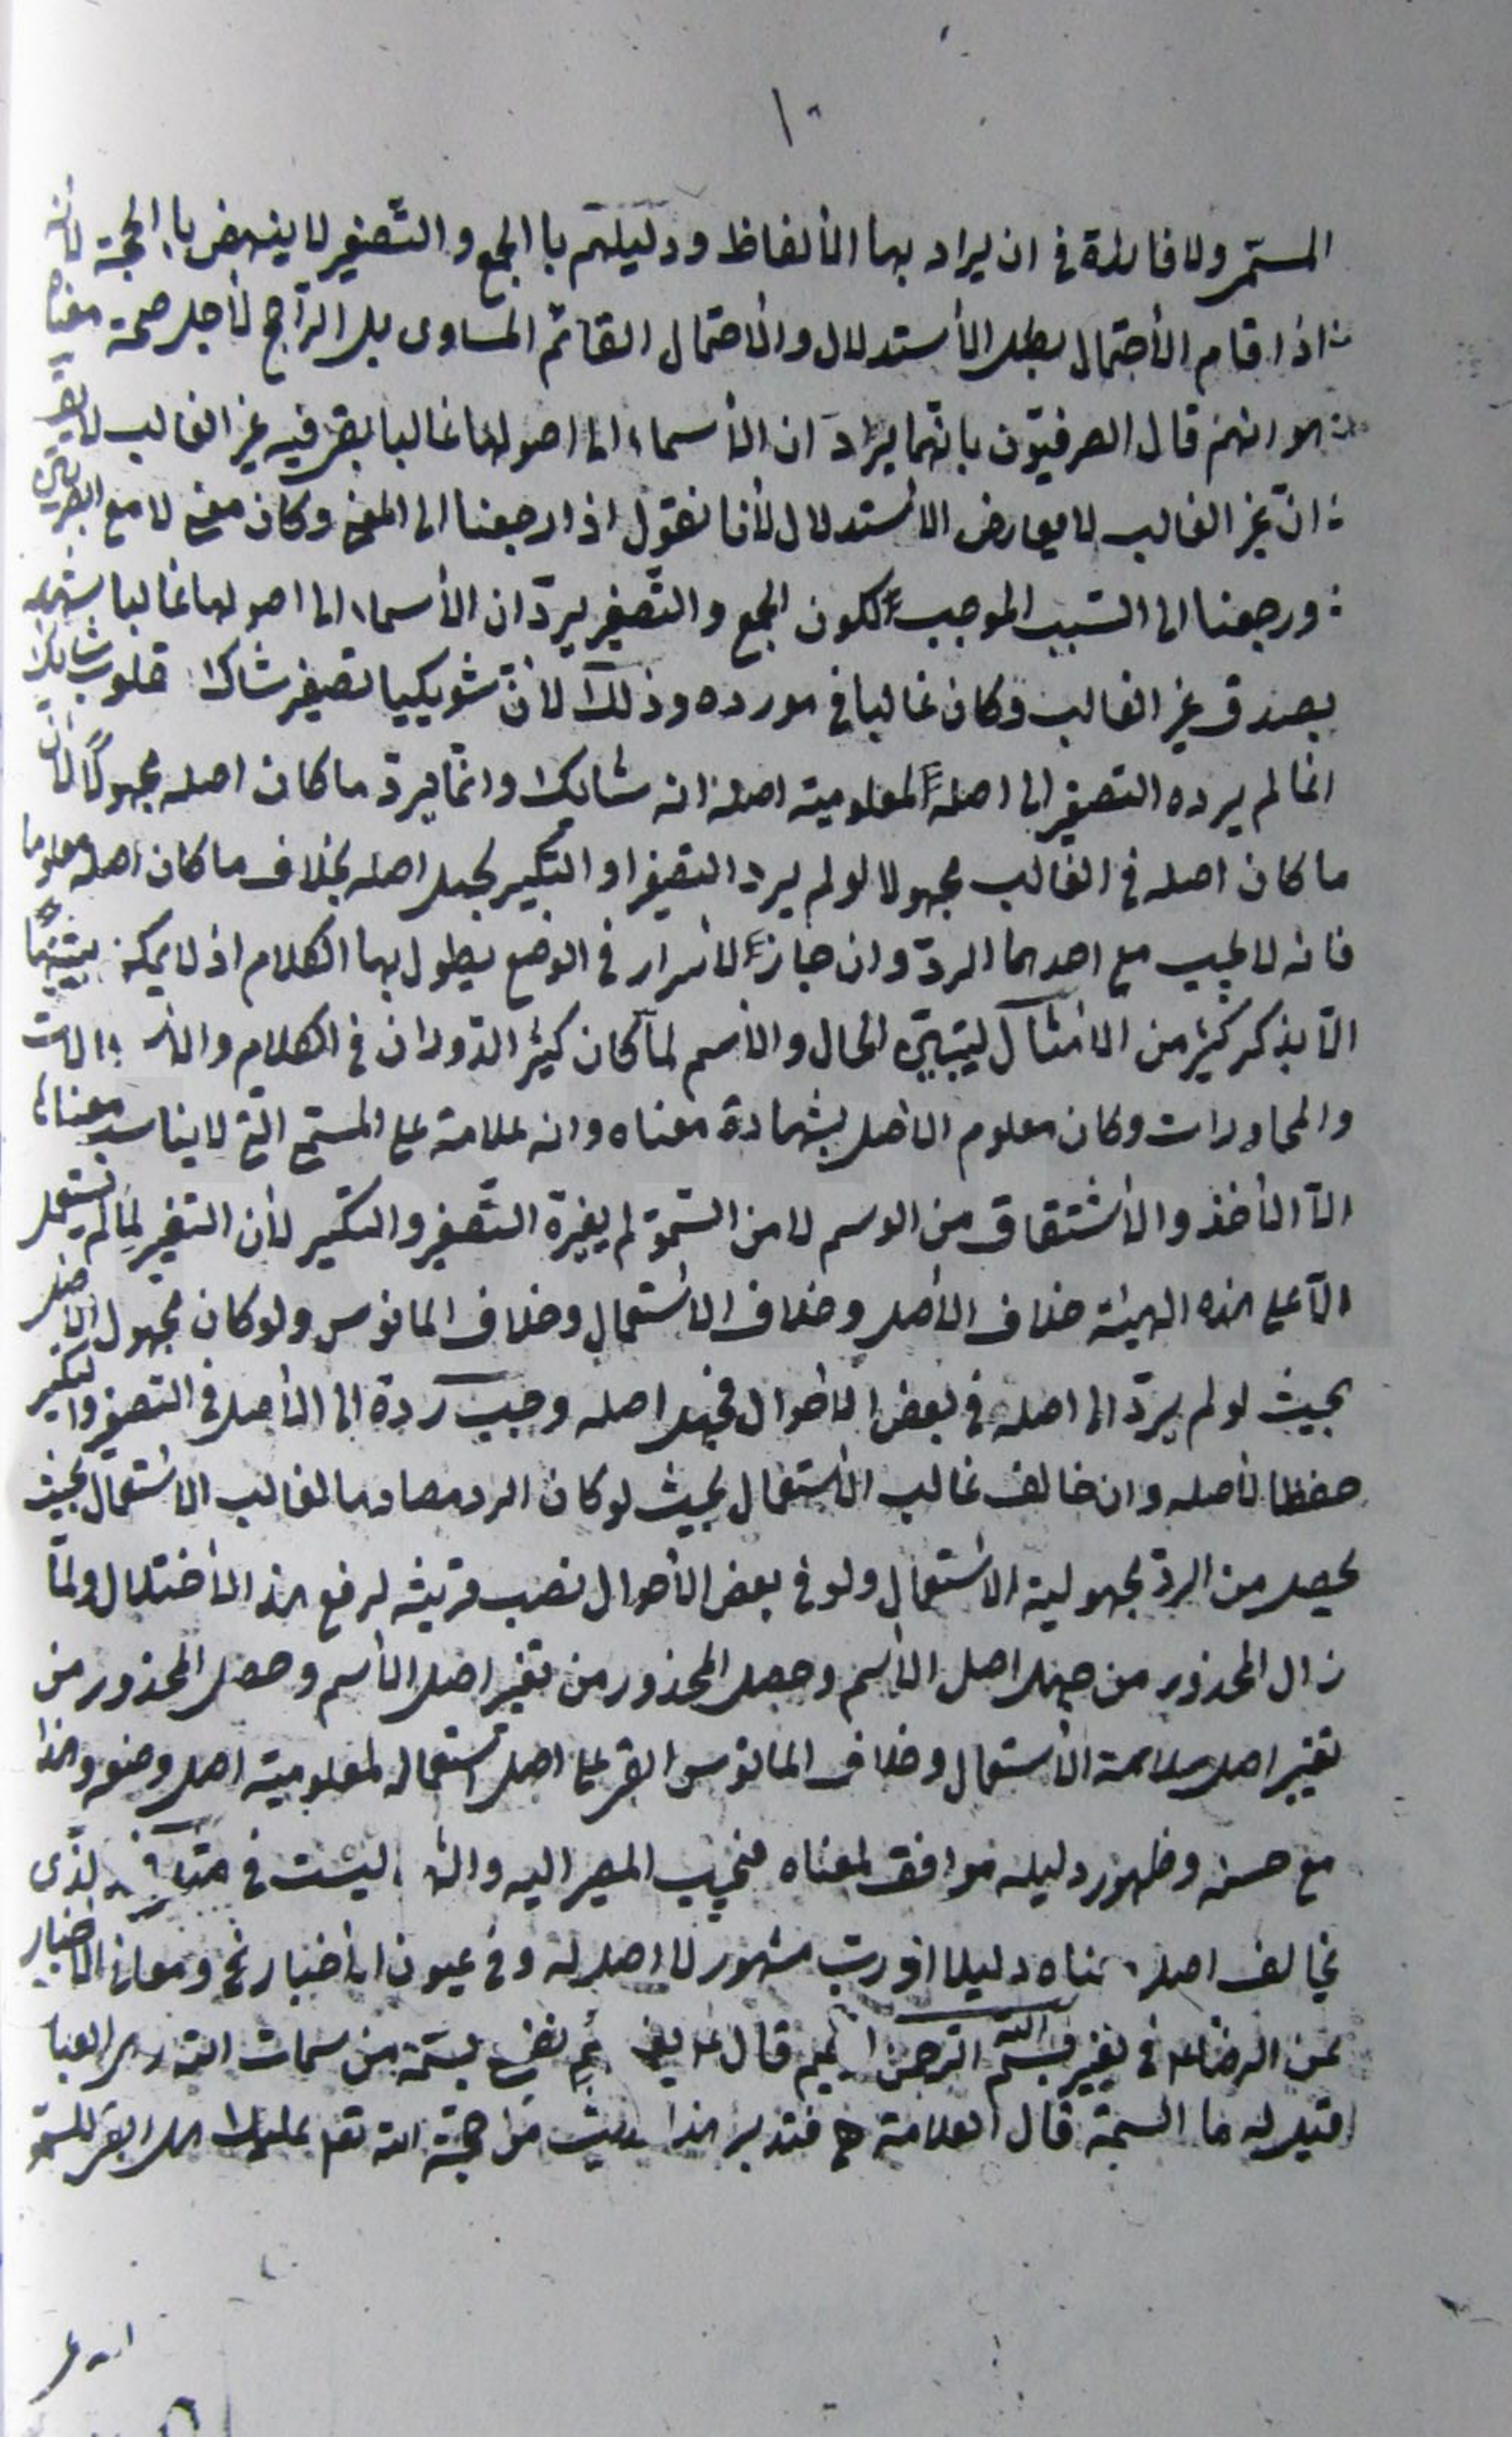 ١٠
المستمر ولا فائدة في ان يراد بها الألفاظ ودليلهم با الجمع والتّصغير لا ينهض با لحجة لأنه
اذا قام الأحتمال بطل الأستدلال والأحتمال القائم المساوى بل الرّاجح لأجل صحة معناه
هو انهم قال الصرفيّون بانّهما يرادّان الأسماء الى اصولها غالبا بقى فيه غير الغالب لا يقال
انّ غير الغالب لا يعارض الاستدلال لأنا نقول اذا رجعنا الى المعنى وكان معنى لا مع البصريين
ورجعنا الى السّبب الموجب لكون الجمع والتّصغير يردّان الأسماء الى اصولها غالبا يشهد
بصدق غير الغالب وكان غالبا في مورده وذلك لأنّ شويكيا تصغير شاك مقلوب شايك
انما لم يرده التصغير الى اصله لمعلومية اصله انه شايك وانّما يردّ ما كان اصله مجهولًا لأنّ
ما كان اصله في الغالب مجهولا لو لم يرد التصغير او التكسير لجهل اصله بخلاف ما كان اصله معلوما
فانه لا يجب مع احدهما الردّ وان جاز لأسرار في الوضع يطول بها الكلام اذ لا يمكن بيانها
الّا بذكر كثير من الامثال ليتبيّن الحال والأسم لمّا كان كثير الدّوران في الكلام و
والمحاورات وكان معلوم الاصل بشهادة معناه وانه علامة على المسمّى الّتي لا يناسب معناها
الّا الأخذ والأشتقاق من الوسم لا من السّموّ لم يغيّره التّصغير والتكسير لأن التغيير لما لم يستعمل
الّا على هذه الهيئة خلاف الأصل وخلاف الاستعمال وخلاف المانوس ولو كان مجهول الاصل
بحيث لو لم يردّ الى اصله في بعض الأحوال فجهل اصله وجب ردّه الى الأصل في التصغير والتكسير
حفظا لأصله وان خالف غالب الأستعمال بحيث لو كان الرد مصادما لغالب الاستعمال بحيث
يحصل من الردّ مجهولية الاستعمال ولو في بعض الأحوال نصب قرينة لرفع هذا الأختلال ولمّا
زال المحذور من جهل اصل الأسم وحصل المحذور من تغيير اصل الأسم وحصل المحذور من
تغيير اصل ملائمة الأستعمال وخلاف المانوس ابقى على اصل استعماله لمعلومية اصل وضعه وهذا
مع حسنه وظهور دليله موافق لمعناه فيجب المصير اليه و ليست في الّذى
يخالف اصل معناه دليلا اذ ربّ مشهور لا اصل له وفي عيون الأخبار ومعاني الاخبار
عن الرضا في تفسير بسم الله الرّحمن الرحيم قال يعنى اسم نفسي بسمة من سمات الله العبا
قيل له ما السمة قال العلامة فتدبر هذا من حجّة الله عليك هل ابقى للسّموّ